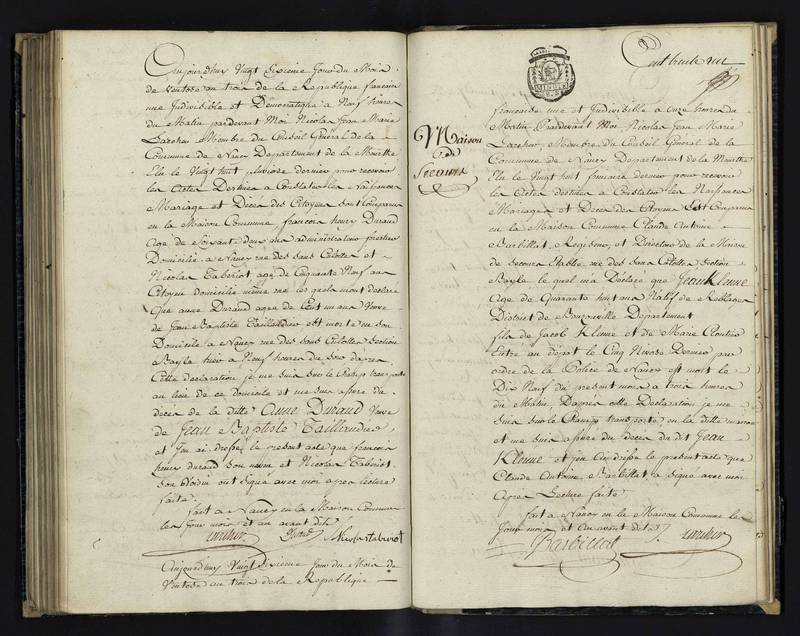 Aujourd'huy Vingt Sixieme Jour du Mois
de Ventose au trois de la Republique francaise
une Indivisible et Democratique a Neuf heures
du Matin pardevant Moi Nicolas Jean Marie
Larcher Membre du Conseil Général de la
Commune de Nancy Departement de la Meurthe
Elu le Vingt huit pluviose dernier pour recevoir
les Actes Destinés a Constater les Naissances
Mariage et Décès des Citoyens sont Comparus
en la Maison Commune, françois henry Durand
Agé de Soixante Deux ans administrateur forestier
Domicilié a Nancy rue des sans Culottes et
Nicolas Taberiot agé de Cinquante Neuf ans
Citoyen domicilié même rue les quels m'ont déclaré
Que anne Durand agée de Cent un ans Veuve
de Jean Baptiste Taillandier est morte en son
Domicile a Nancy rue des sans Culottes Section
Bayle hier a Neuf heures du soir d'apres
Cette déclaration je me suis sur le Champ transporté
au lieu de ce domicile et me suis assuré du
décès de la ditte Anne Durand Veuve
de Jean Baptiste Taillandier
et J'en ai dressé le present acte que francois
henry durand Son neveu et Nicolas Taberiot
Son Voisin ont Signé avec moi apres lecture
faite
fait a Nancy en la Maison Commune
les Jour mois et an avant dits
Larcher Durand Nicolas taberiot
Aujourd'huy Vingt Sixieme Jour du Mois de
Ventose au trois de la Republique
Cent trente
Maison
de
Secours
francaise une et Indivisible a Onze heures du
Matin Pardevant Moi Nicolas Jean Marie
Larcher, Membre du Conseil Général de la
Commune de Nancy Departement de la Meurthe
Elu le Vingt huit dernier pour recevoir
les Actes destinés a Constater les Naissances
Mariages et Décès des Citoyens Est Comparu
en la Maison Commune Claude Antoine
Barbillat, Regisseur et Directeur de la Maison
de Secours Etablie rue des Sans Culottes Section
Bayle le quel m'a Déclaré que Jean Klenne
Agé de Quarante huit ans Natif de
District de Bouzonville Departement
fils de Jacob Klenne et de Marie
Entré au dépot le Cinq Nivose Dernier par
ordre de la Police de Nancy est mort le
Dix Neuf du present mois a trois heures
du Matin, D'apres cette Déclaration je me
suis sur le Champ transporté en la ditte maison
et me suis assuré du décès du dit Jean
Klenne et j'en ai dressé le present acte que
Claude Antoine Barbillat a Signé avec moi
Apres Lecture faite
fait a Nancy en la Maison Commune les
Jour mois et an avant dits
Barbillat Larcher